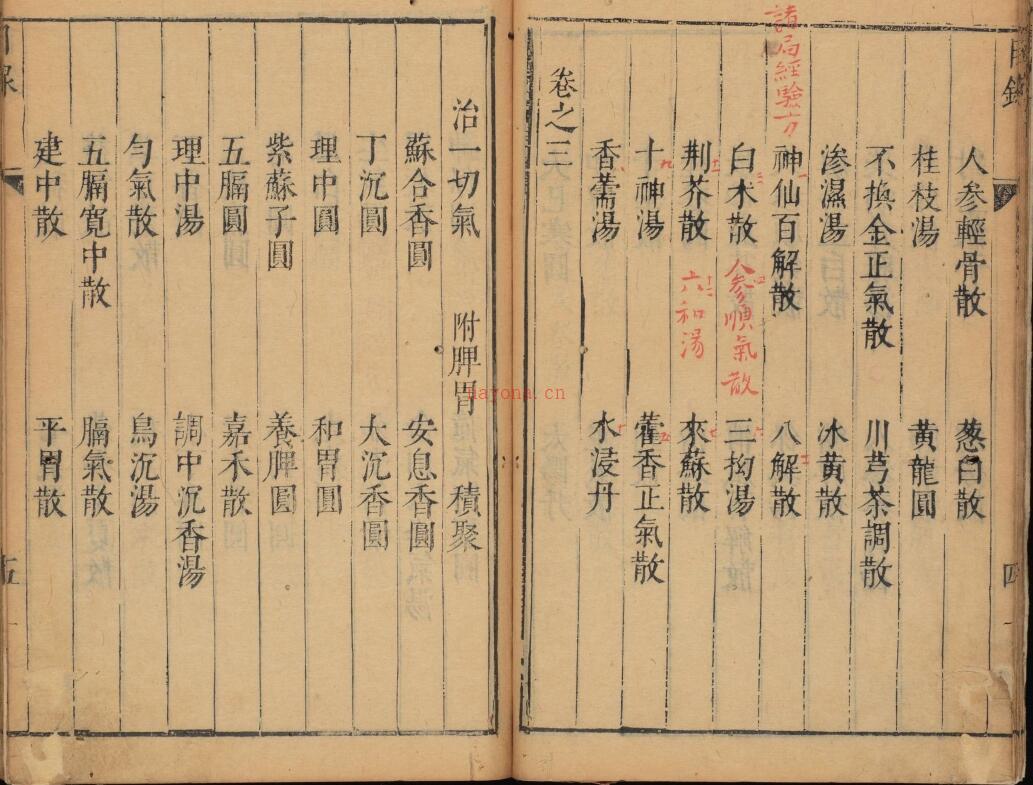 目錄
四
人參輕骨散 葱白散
桂枝湯 黃龍圓
不換金正氣散 川芎茶調散
滲濕湯 冰黃散
諸局經驗方
神仙百解散 八解散
白朮散 人參順氣散 三拗湯
荆芥散 六和湯 來蘇散
十神湯 藿香正氣散
香薷湯 水浸丹
卷之三
治一切氣 附脾胃 積聚
蘇合香圓 安息香圓
丁沉圓 大沉香圓
理中圓 和胃圓
紫蘇子圓 養脾圓
五膈圓 嘉禾散
理中湯 調中沉香湯
勻氣散 烏沉湯
五膈寬中散 膈氣散
建中散 平胃散
五
nayona.cn